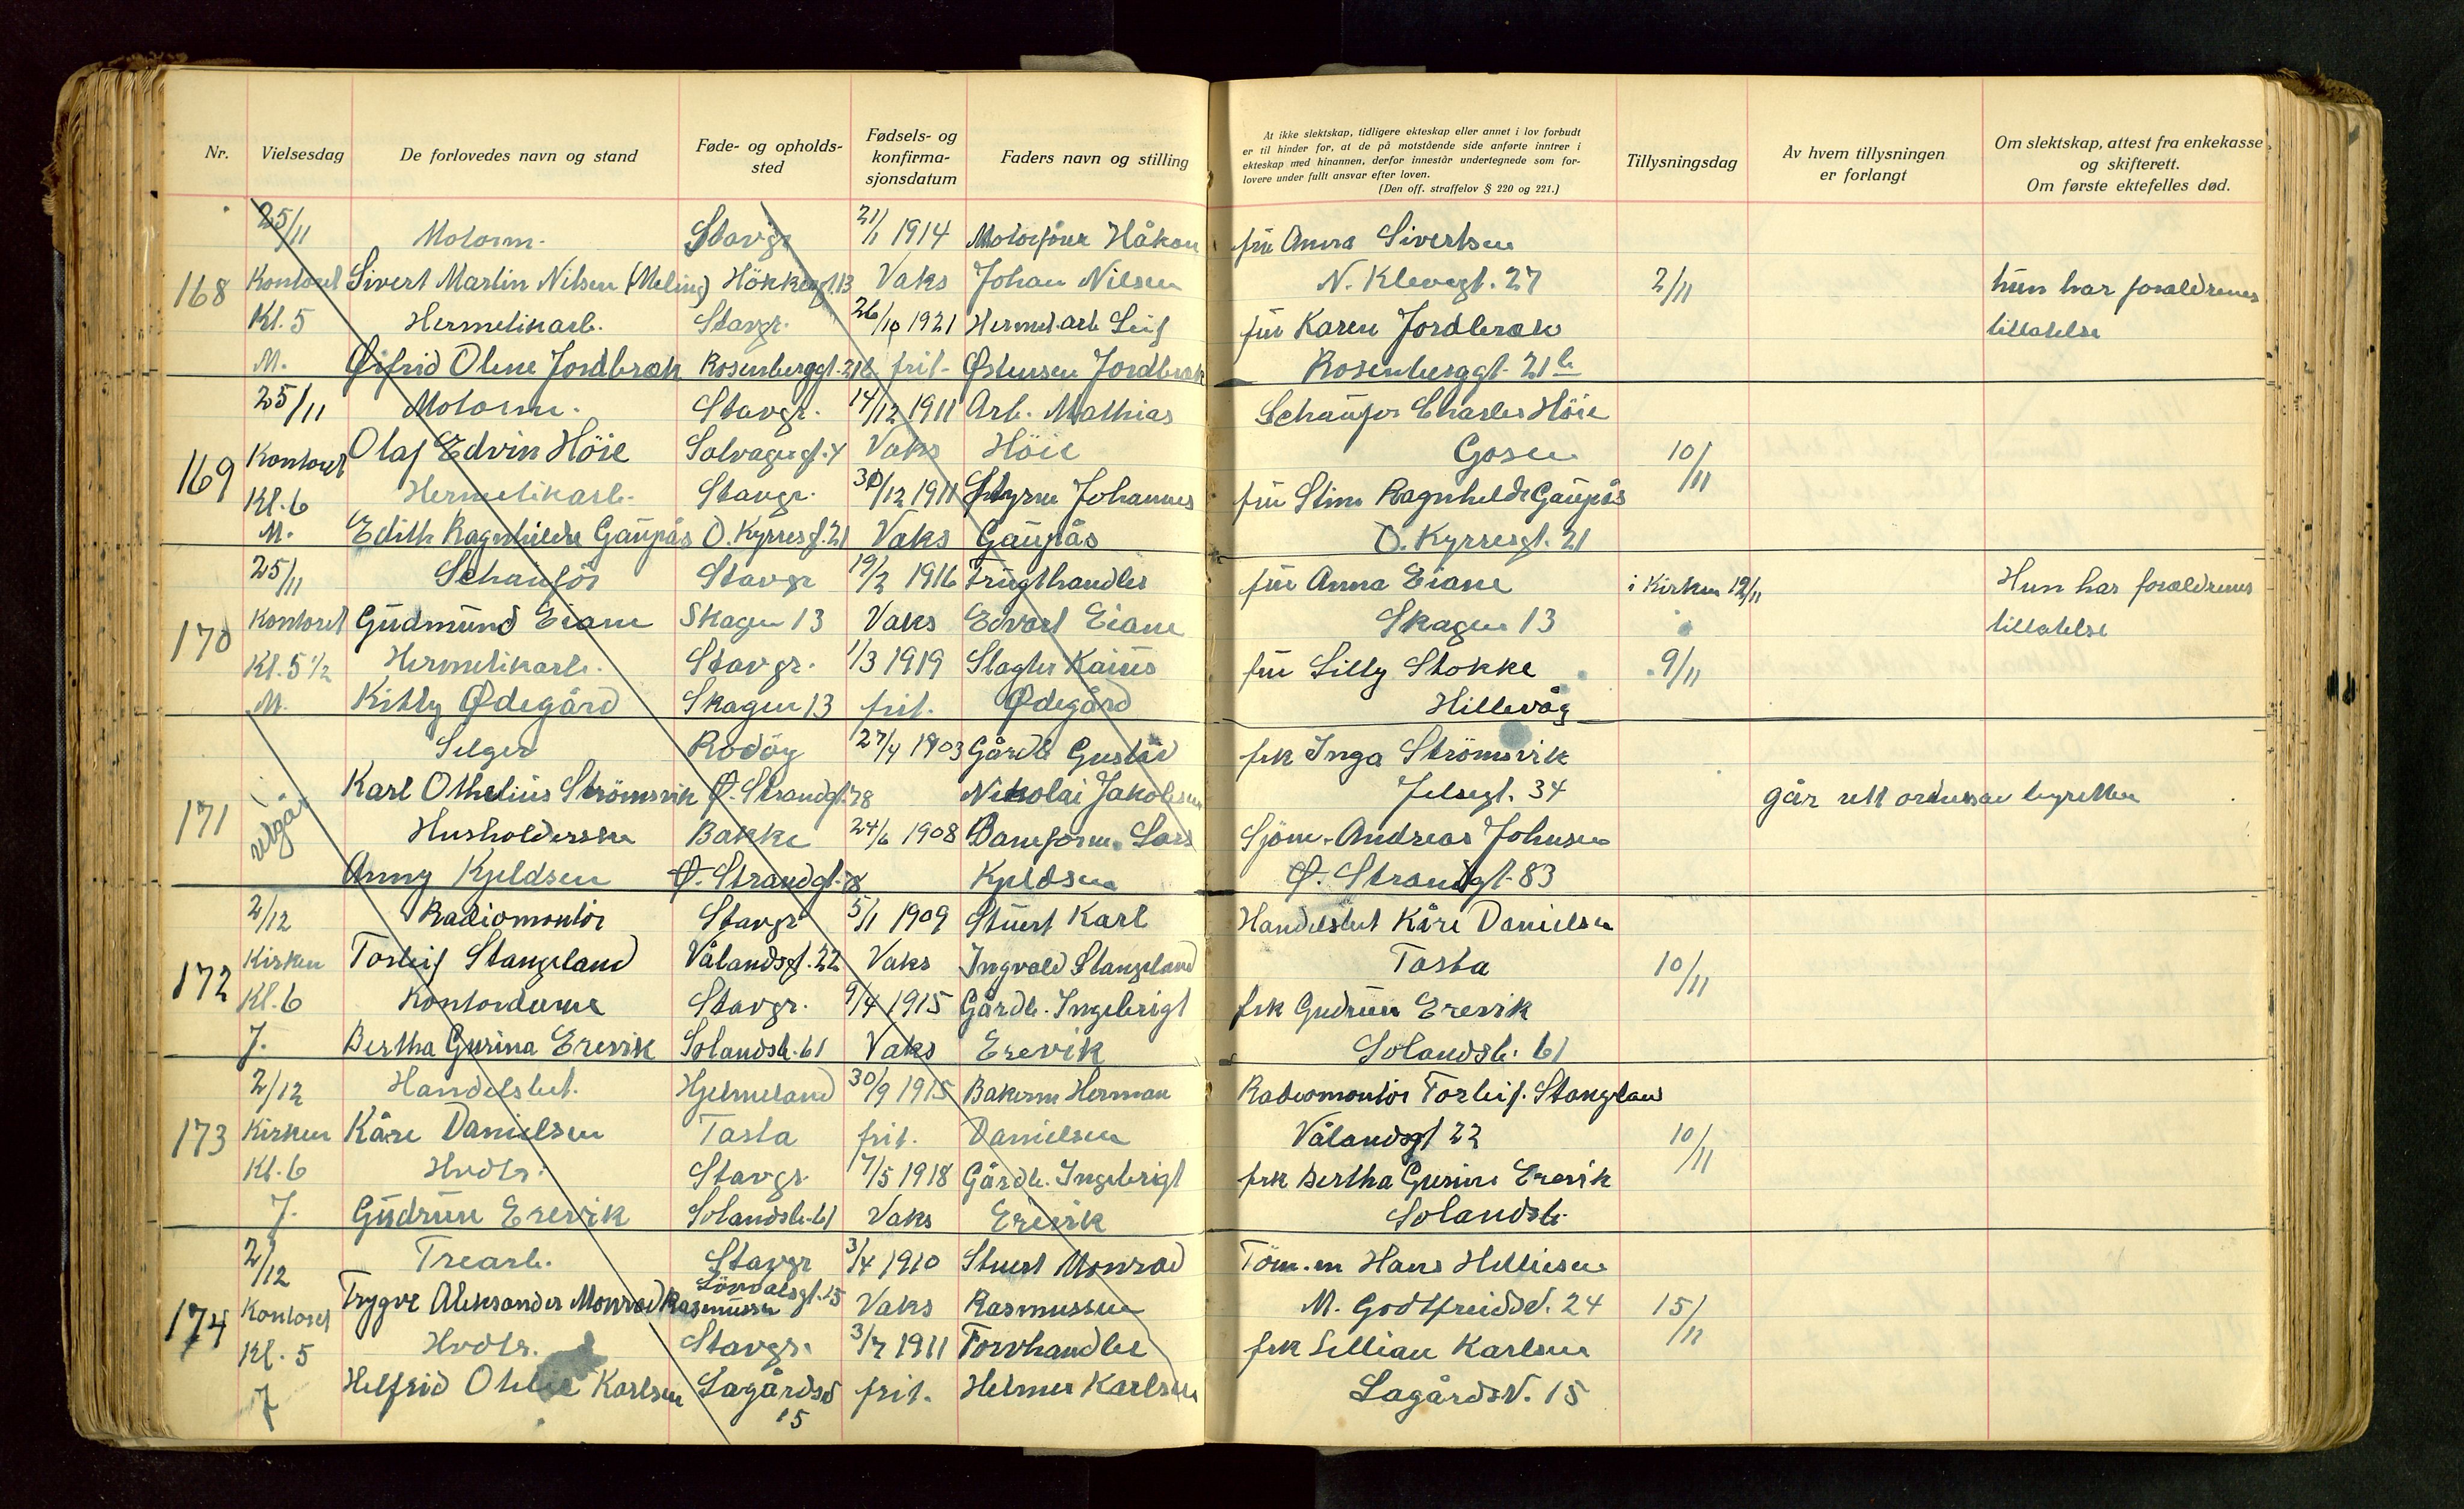 Nr.
Vielsesdag
De forlovedes navn og stand
Føde- og opholds-
sted
Fødsels- og
konfirma-
sjonsdatum
Faders navn og stilling
At ikke slektskap, tidligere ekteskap eller annet i lov forbudt
er til hinder for, at de på motstående side anførte inntrer i
ekteskap med hinannen, derfor innestår undertegnede som for-
lovere under fullt ansvar efter loven.
(Den off. straffelov § 220 og 221.)
Tillysningsdag
Av hvem tillysningen
er forlangt
Om slektskap, attest fra enkekasse
og skifterett.
Om første ektefelles død.
25/11 Motorm. Stavgr 21/1 1914 Motorfører Håkon fru Anna Sivertsen
168 Kontoret Sivert Martin Nilsen (Meling) Hökkergt. 13 Vaks Johan Nilsen N. Klevegt. 27 2/11 hun har foreldrenes
Kl. 5 Hermetikarb. Stavgr. 26/10 1921 Hermet.arb Leif fru Karen Jordbræk tillatelse
M. Øifrid Oline Jordbræk Rosenberggt. 21b frit. Østensen Jordbræk Rosenberggt. 21b
25/11 Motorm. Stavgr. 14/12 1911 Arb. Mathias Schaufør Charles Höie
169 Kontoret Olaf Edvin Höie Solvagergt. 4 Vaks Höie Gosen 10/11
Kl. 6 Hermetikarb. Stavgr. 30/12 1911 Styrm Johannes fru Stine Ragnhilde Gaupås
M. Edith Ragnhilde Gaupås O. Kyrresgt. 21 Vaks Gaupås O. Kyrresgt. 21
25/11 Schauför Stavgr 19/2 1916 Frugthandler fru Anna Eiane i Kirken 12/11 Hun har foreldrenes
170 Kontoret Gudmund Eiane Skagen 13 Vaks Edvart Eiane Skagen 13 tillatelse
Kl. 5 1/2 Hermetikarb. Stavgr. 1/3 1919 Slagter Kaius fru Lilly Stokke 9/11
M. Kitty Ødegård Skagen 13 frit. Ødegård Hillevåg
Selger Rodöy 27/4 1903 Gårdb Gustav frk Inga Strömsvik
171 utgår Karl Othelius Strömsvik Ø. Strandgt. 78 Nikolai Jakobsen Jelsegt. 34 går rett
Husholderske Bakke 24/6 1908 Baneform. Lars Sjöm. Andreas Johnsen
Anny Kjeldsen Ø. Strandgt. 78 Kjeldsen Ø. Strandgt. 83
2/12 Radiomontör Stavgr 5/1 1909 Stuert Karl Handelsbet Kåre Danielsen
172 Kirken Torleif Stangeland Vålandsgt. 22 Vaks Ingvald Stangeland Tasta 10/11
Kl. 6 Kontordame Stavgr. 9/4 1915 Gårdb. Ingebrigt frk Gudrun Erevik
J. Bertha Gurina Erevik Solandsb. 61 Vaks Erevik Solandsb. 61
2/12 Handelsbet. Hjelmeland 30/9 1915 Bakerm Herman Radiomontör Torleif. Stangeland
173 Kirken Kåre Danielsen Tasta frit. Danielsen Vålandsgt 22 10/11
Kl. 6 Hvdtr. Stavgr. 17/5 1918 Gårdb. Ingebrigt frk Bertha Gurine Erevik
J. Gudrun Erevik Solandsb. 61 Vaks Erevik Solandsb.
2/12 Trearb. Stavgr 3/4 1910 Stuert Monrad Töm.m Hans Helliesen
174 Kontoret Trygve Aleksander Monrad Rasmussen Lövdalsgt. 15 Vaks Rasmussen M. Godtfreidsv. 24 15/11
Kl. 5 Hvdtr. Stavgr. 3/7 1911 Torvhandler frk Lillian Karlsen
J Helfrid Karlsen Lagårdsv 15 frit. Helmer Karlsen Lagårdsv. 15